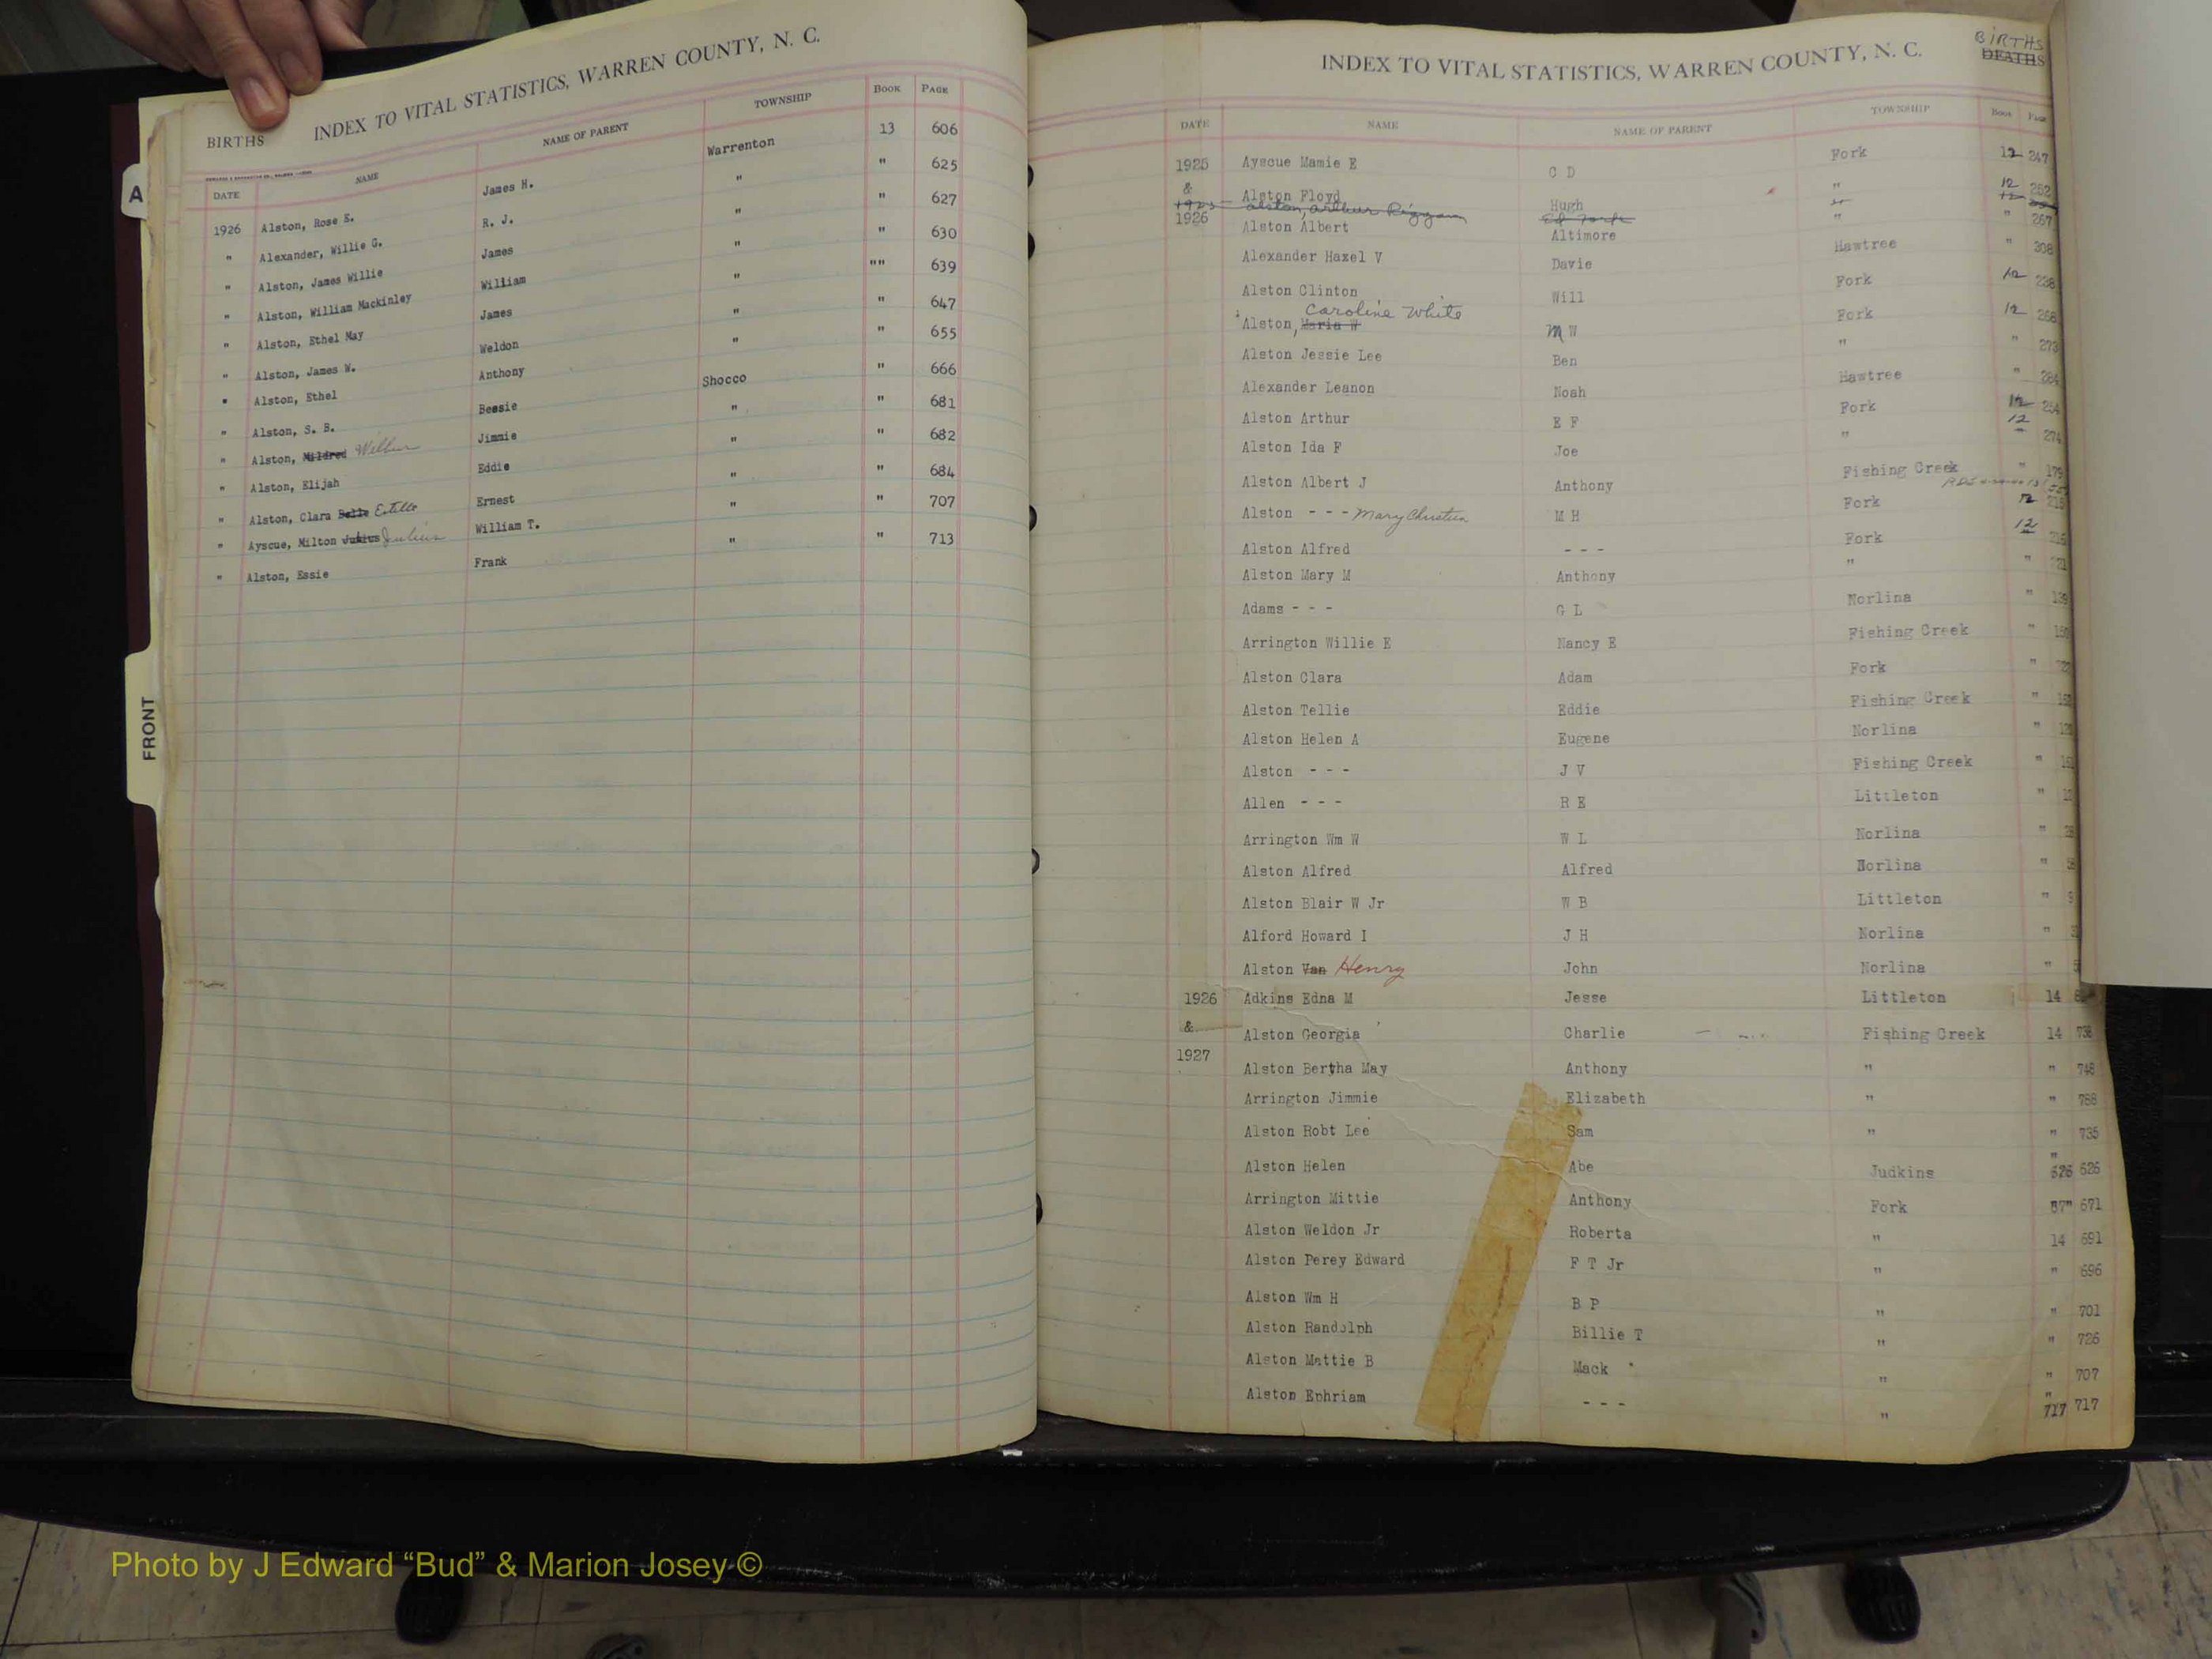 A
FRONT
INDEX TO VITAL STATISTICS, WARREN COUNTY, N. C.
BIRTHS
DATE NAME NAME OF PARENT TOWNSHIP BOOK PAGE
1926 Alston, Rose E. James H. Warrenton 13 606
" Alexander, Willie G. R. J. " " 625
" Alston, James Willie James " " 627
" Alston, William Mackinley William " " 630
" Alston, Ethel May James " "" 639
" Alston, James W. Weldon " " 647
" Alston, Ethel Anthony " " 655
" Alston, S. B. Bessie Shocco " 666
" Alston, Mildred Wilbur Jimmie " " 681
" Alston, Elijah Eddie " " 682
" Alston, Clara Belle Estelle Ernest " " 684
" Ayscue, Milton Junius Julius William T. " " 707
" Alston, Essie Frank " " 713
INDEX TO VITAL STATISTICS, WARREN COUNTY, N. C.
BIRTHS
DEATHS
DATE NAME NAME OF PARENT TOWNSHIP BOOK PAGE
1925 Ayscue Mamie E C D Fork 12 247
& Alston Floyd Hugh " 12 252
1925 Alston, Arthur Riggan 12
1926 Alston Albert Altimore " " 267
Alexander Hazel V Davie Hawtree " 308
Alston Clinton Will Fork 12 238
Caroline White
Alston, Maria W M W Fork 12 266
Alston Jessie Lee Ben " " 273
Alexander Leanon Noah Hawtree " 284
Alston Arthur E F Fork 12 254
Alston Ida F Joe " 12 274
Alston Albert J Anthony Fishing Creek " 179
Alston - - - Mary Christian M H Fork 12
Alston Alfred - - - Fork 12
Alston Mary M Anthony " "
Adams - - - G L Norlina " 139
Arrington Willie E Nancy E Fishing Creek " 150
Alston Clara Adam Fork "
Alston Tellie Eddie Fishing Creek "
Alston Helen A Eugene Norlina "
Alston - - - J V Fishing Creek "
Allen - - - R E Littleton "
Arrington Wm W W L Norlina "
Alston Alfred Alfred Norlina "
Alston Blair W Jr W B Littleton "
Alford Howard I J H Norlina "
Alston Van Henry John Norlina "
1926 Adkins Edna M Jesse Littleton 14
& Alston Georgia Charlie Fishing Creek 14 738
1927
Alston Bertha May Anthony " " 746
Arrington Jimmie Elizabeth " " 788
Alston Robt Lee Sam " " 735
Alston Helen Abe Judkins " 626 626
Arrington Mittie Anthony Fork 67" 671
Alston Weldon Jr Roberta " 14 691
Alston Perey Edward F T Jr " " 696
Alston Wm H B P " " 701
Alston Randolph Billie T " " 726
Alston Mattie B Mack " " 707
Alston Ephriam - - - " " 717 717
Photo by J Edward “Bud” & Marion Josey ©